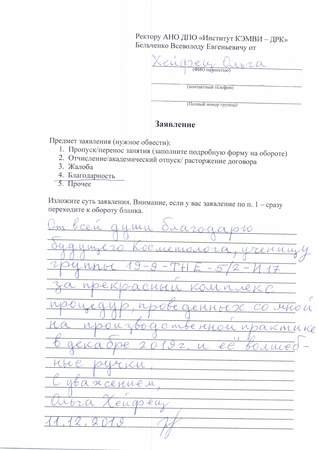 Ректору АНО ДПО «Институт КЭМВИ – ДРК»
Бельченко Всеволоду Евгеньевичу от
Хейфец Ольга
(ФИО полностью)
(контактный телефон)
(Полный номер группы)
Заявление
Предмет заявления (нужное обвести):
1. Пропуск/перенос занятия (заполните подробную форму на обороте)
2. Отчисление/академический отпуск/ расторжение договора
3. Жалоба
4. Благодарность
5. Прочее
Изложите суть заявления. Внимание, если у вас заявление по п. 1 – сразу
переходите к обороту бланка.
От всей души благодарю
будущего косметолога, ученицу
группы 19-9-ТНЕ-5/2-И17
за прекрасный комплекс
процедур, проведенных со мной
на производственной практике
в декабре 2019г. и её волшеб-
ные ручки.
С уважением,
Ольга Хейфец
11.12.2019